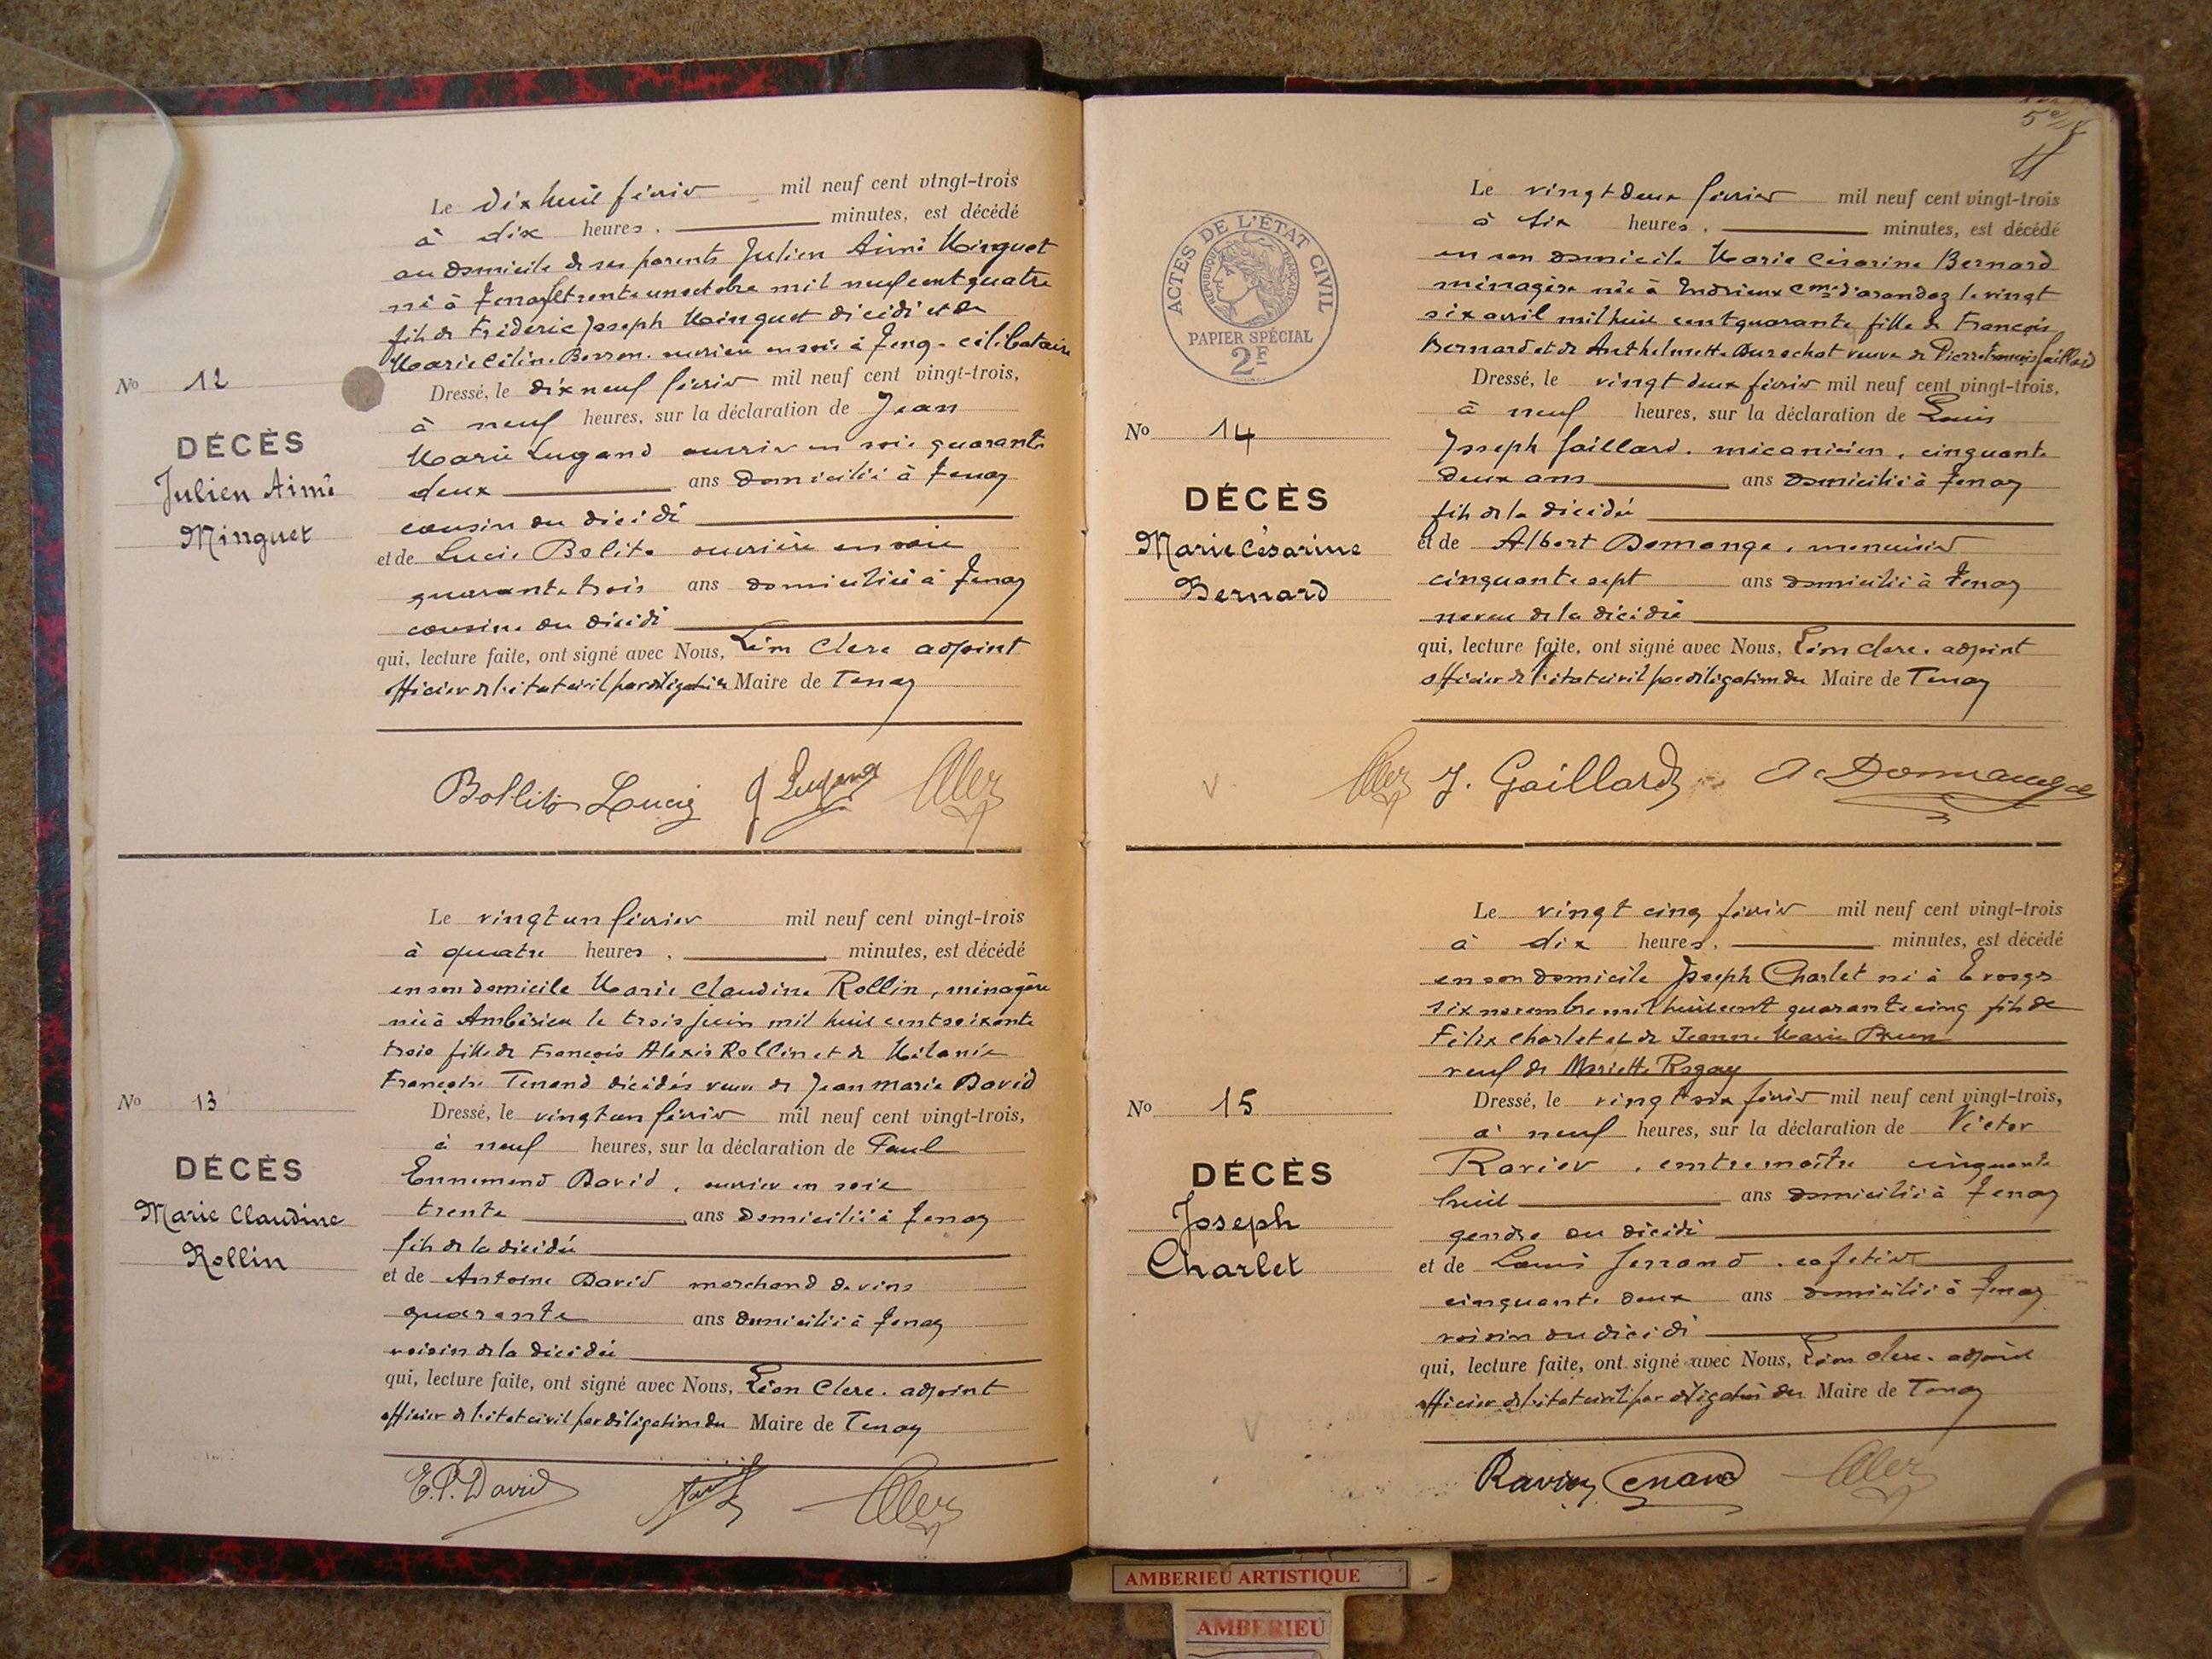 Le dix huit février mil neuf cent vingt-trois
à dix heures, minutes, est décédé
au domicile de ses parents Julien Aimé Minguet
né à Tenay le trente un octobre mil neuf cent quatre
fils de Fréderic Joseph Minguet décédé et de
Marie Céline ouvrier en soie à Tenay - célibataire
No 12
DÉCÈS
Julien Aimé
Minguet
Dressé, le dix neuf février mil neuf cent vingt-trois,
à neuf heures, sur la déclaration de Jean
Marie Lugand ouvrier en soie quarante
deux ans domicilié à Tenay
cousin du décédé
et de Lucie Bolito ouvrière en soie
quarante trois ans domiciliée à Tenay
cousine du décédé
qui, lecture faite, ont signé avec Nous, Léon Clerc adjoint
officier de l'état civil par délégation Maire de Tenay
Bollito Lucie J Lugand Clerc
Le vingt un février mil neuf cent vingt-trois
à quatre heures, minutes, est décédé
en son domicile Marie Claudine Rollin, ménagère
née à Ambérieu le trois juin mil huit cent soixante
trois fille de François Alexis Rollin et de Mélanie
Françoise Tenand décédés veuve de Jean Marie David
No 13
DÉCÈS
Marie Claudine
Rollin
Dressé, le vingt un février mil neuf cent vingt-trois,
à neuf heures, sur la déclaration de Paul
Ennemond David, ouvrier en soie
trente ans domicilié à Tenay
fils de la décédée
et de Antoine David marchand de vins
quarante ans domicilié à Tenay
voisin de la décédée
qui, lecture faite, ont signé avec Nous, Léon Clerc. adjoint
officier de l'état civil par délégation du Maire de Tenay
E.P. David Clerc
5e
ACTES DE L'ÉTAT CIVIL
RÉPUBLIQUE FRANÇAISE
PAPIER SPÉCIAL
2F
Le vingt deux février mil neuf cent vingt-trois
à six heures, minutes, est décédé
en son domicile Marie Césarine Bernard
ménagère née à Indrieux Cne d'arandaz le vingt
six avril mil huit cent quarante fille de François
Bernard et de Anthelmette veuve de Pierre François Gaillard
No 14
DÉCÈS
Marie Césarine
Bernard
Dressé, le vingt deux février mil neuf cent vingt-trois,
à neuf heures, sur la déclaration de Louis
Joseph Gaillard. mécanicien, cinquante
deux ans ans domicilié à Tenay
fils de la décédée
et de Albert Domange, menuisier
cinquante sept ans domicilié à Tenay
neveu de la décédée
qui, lecture faite, ont signé avec Nous, Léon Clerc. adjoint
officier de l'état civil par délégation du Maire de Tenay
Clerc J. Gaillard A Domange
Le vingt cinq février mil neuf cent vingt-trois
à dix heures, minutes, est décédé
en son domicile Joseph Charlet né à Evosges
six novembre mil huit cent quarante cinq fils de
Félix Charlet et de Jeanne Marie Brun
veuf de Mariette Rogay
No 15
DÉCÈS
Joseph
Charlet
Dressé, le vingt six février mil neuf cent vingt-trois,
à neuf heures, sur la déclaration de Victor
Ravier, contremaître cinquante
huit ans domicilié à Tenay
gendre du décédé
et de Louis cafetier
cinquante deux ans domicilié à Tenay
voisin du décédé
qui, lecture faite, ont signé avec Nous, Léon Clerc. adjoint
officier de l'état civil par délégation du Maire de Tenay
Ravier Clerc
AMBERIEU ARTISTIQUE
AMBERIEU